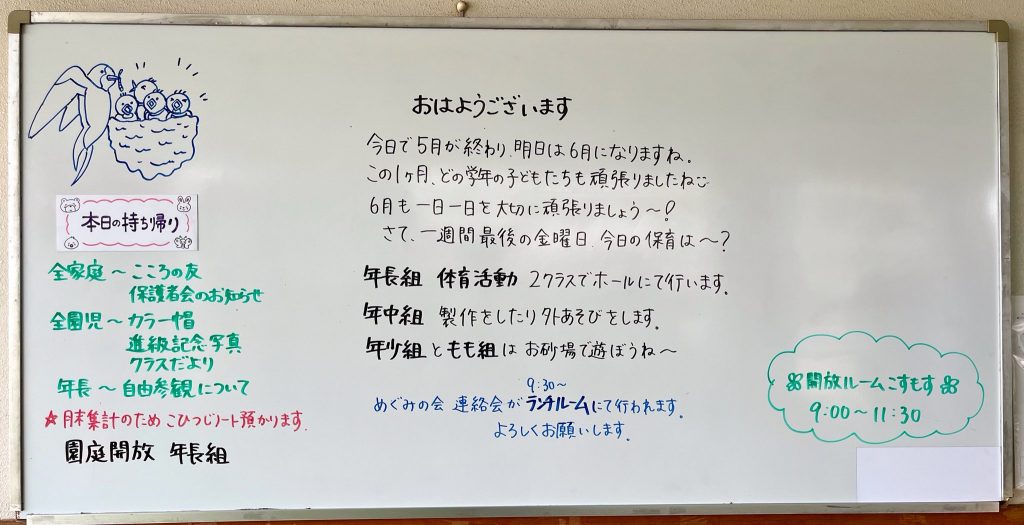 おはようございます
今日で5月が終わり、明日は6月になりますね。
この1ヶ月、どの学年の子どもたちも頑張りましたね
6月も一日一日を大切に頑張りましょう〜!
さて、一週間最後の金曜日、今日の保育は〜?
年長組 体育活動 2クラスでホールにて行います。
年中組 製作をしたり外あそびをします。
年少組ともも組はお砂場で遊ぼうね〜
9:30〜
めぐみの会 連絡会がランチルームにて行われます。
よろしくお願いします。
本日の持ち帰り
全家庭〜こころの友
保護者会のお知らせ
全園児〜カラー帽
進級記念写真
クラスだより
年長〜自由参観について
☆月末集計のためこひつじノート預かります。
園庭開放 年長組
開放ルームこすもす
9:00〜11:30